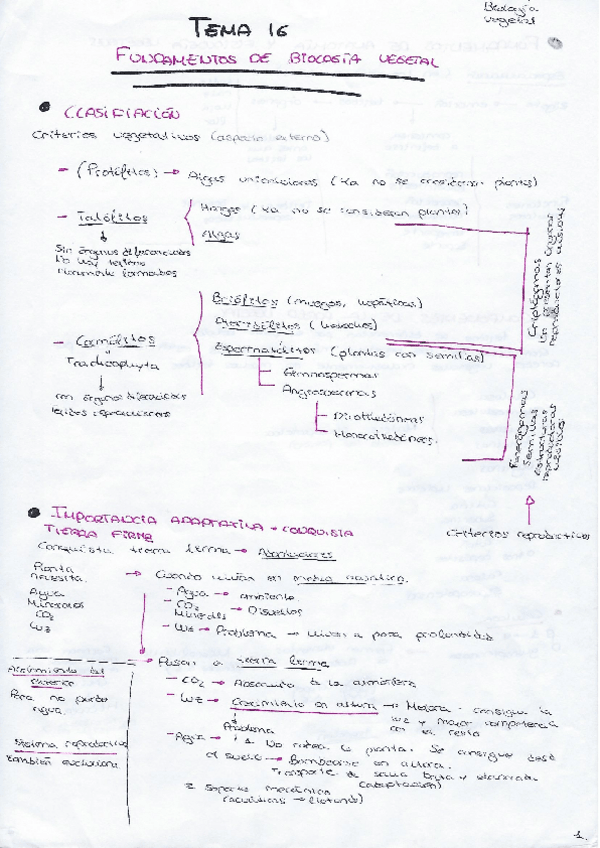 Biología
vegetal
TEMA 16
FUNDAMENTOS DE BIOLOGÍA VEGETAL
CLASIFIACIÓN
Criterios vegetativos (aspecto externo)
- (Protófitos) → Algas unicelulares (Ya no se consideran plantas)
- Talófitos
Hongos (Ya no se consideran plantas)
Algas
Sin órganos diferenciados
No hay tejidos
formados
Criptógamas
No presentan órganos
reproductores visibles
Briófitos (musgos, hepáticas)
Pteridófitos (helechos)
- Cormófitos
Espermatófitos (plantas con semillas)
Tracheophyta
Gimnospermas
Angiospermas
con órganos diferenciados
tejidos
Dicotiledóneas
Monocotiledóneas
Fanerógamas
Semillas
estructuras
reproductoras
visibles
Criterios reproductivos
IMPORTANCIA ADAPTATIVA → CONQUISTA
TIERRA FIRME
Conquista tierra firme → Adaptaciones
Planta
necesita.
Agua
Minerales
CO2
Luz
→ Cuando vivían en medio acuático.
- Agua → ambiente.
- CO2
Minerales → Disueltos
- Luz → Problema → vivían a poca profundidad
→ Pasan a tierra firme
- CO2 → Absorción de la atmósfera
- Luz → Crecimiento en altura → Mejora - consigue la
luz y mayor competencia
con el resto
Problema
- Agua → 1. No rodea la planta. Se consigue desde
el suelo → Bombearse en altura.
Transporte de savia bruta y elaborada
(adaptación)
2. Soporte mecánico
(acuáticas → flotando)
del
Para no perder
agua.
Sistema reproductivo
también evoluciona
1.